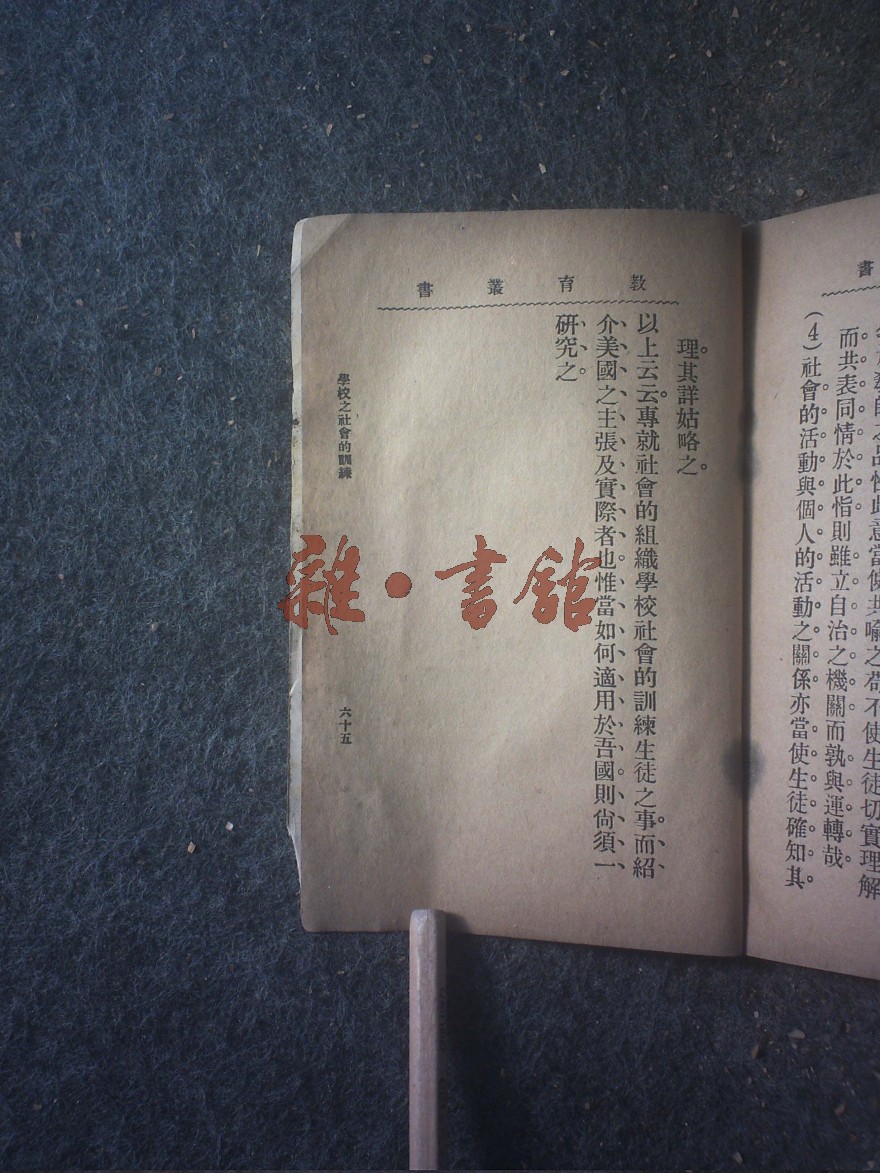 書
令於教師之品性此意當使共喩之苟不使生徒切實理解
而共表同情於此恉則雖立自治之機關而孰與運轉哉。
(4)社會的活動與個人的活動之關係亦當使生徒確知其。
教育叢書
理。其詳姑略之。
以上云云。專就社會的組織學校社會的訓練生徒之事。而紹
介美國之主張及實際者也惟當如何適用於吾國。則尙須一
研究之。
學校之社會的訓練
六十五
雜·書館